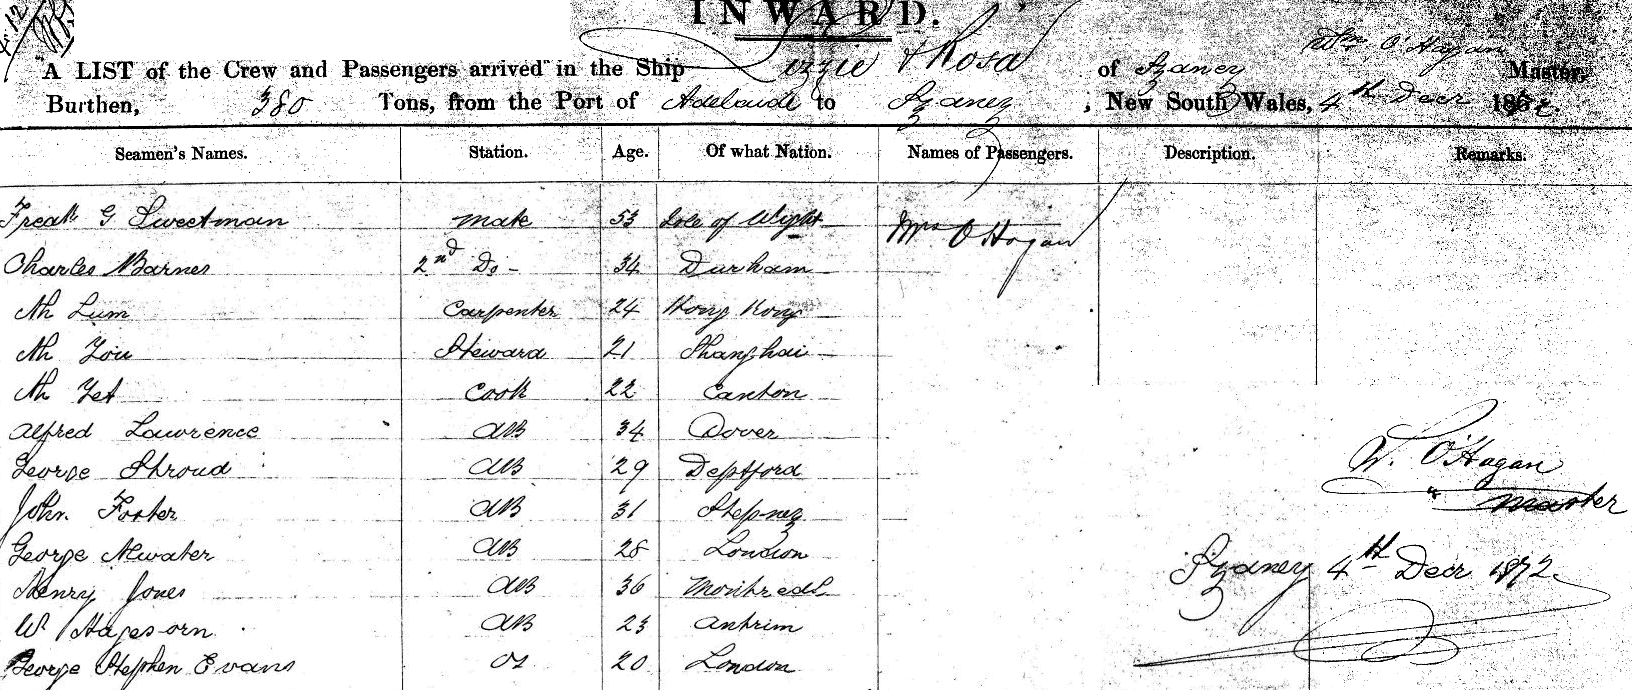 INWARD.
Wm. O'Hagan
A LIST of the Crew and Passengers arrived in the Ship Lizzie & Rosa of Sydney Master,
Burthen, 380 Tons, from the Port of Adelaide to Sydney, New South Wales, 4th Decr 1872.
Seamen's Names. Station. Age. Of what Nation. Names of Passengers. Description. Remarks.
Fredk G Sweetman Mate 53 Isle of Wight Mrs O'Hagan
Charles Barnes 2nd Do - 34 Durham
Ah Lum Carpenter 24 Hong Kong
Ah You Steward 21 Shanghai
Ah Yet Cook 22 Canton
Alfred Lawrence AB 34 Dover
George Shroud AB 29 Deptford
John Foster AB 31 Stepney
George Atwater AB 28 London
Henry Jones AB 36 Montreal
W AB 23 Antrim
George Stephen Evans OS 20 London
W. O'Hagan
Master
Sydney 4th Decr 1872